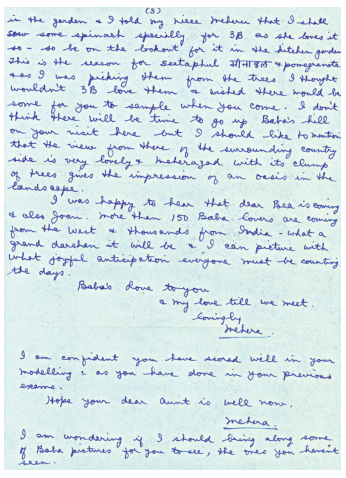 (3)
in the garden & I told my niece Meheru that I shall
sow some spinach specially for 3B as she loves it
so - so be on the lookout for it in the kitchen garden
This is the season for seetaphul सीताफल & pomegranate
& as I was picking them from the trees I thought
wouldn't 3B love them & wished there would be
some for you to sample when you come. I don't
think there will be time to go up Baba's hill
on your visit here but I should like to mention
that the view from there of the surrounding country
side is very lovely & Meherazad with its clump
of trees gives the impression of an oasis in the
landscape.
I was happy to hear that dear Bea is coming
& also Joan. More than 150 Baba lovers are coming
from the West & thousands from India - what a
grand darshan it will be & I can picture with
what joyful anticipation everyone must be counting
the days.
Baba's love to you
& my love till we meet.
lovingly
Mehera.
I am confident you have scored well in your
modelling : as you have done in your previous
exams.
Hope your dear Aunt is well now.
Mehera.
I am wondering if I should bring along some
of Baba pictures for you to see, the ones you haven't
seen.